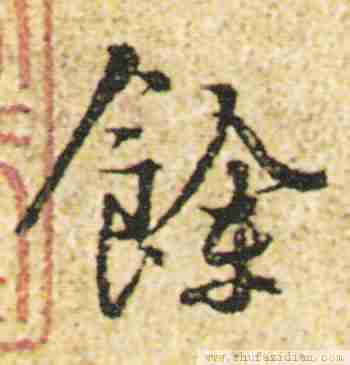 餘
www.shufazidian.com